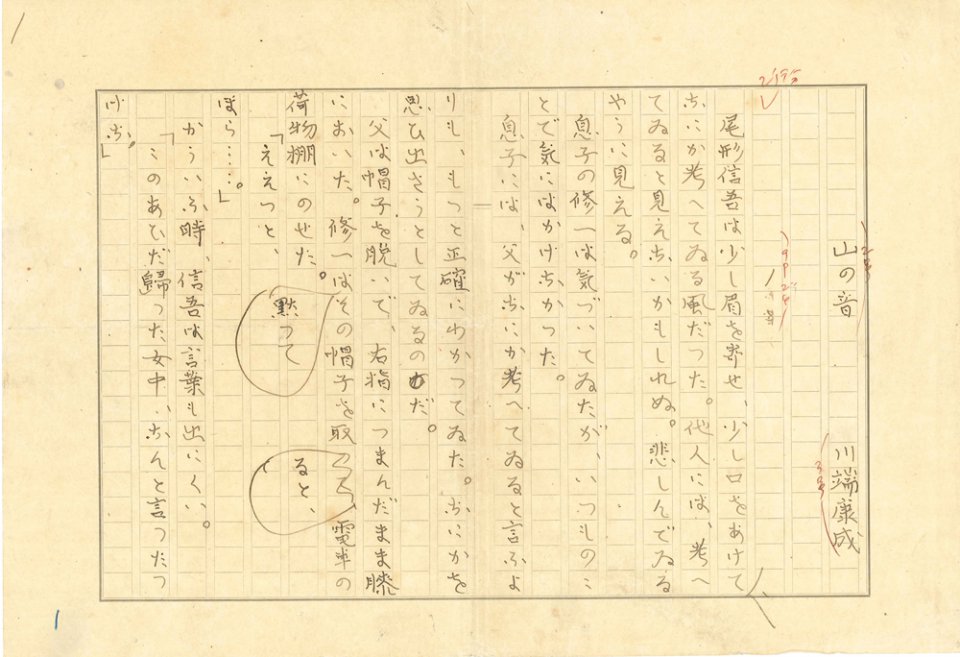 山の音
川端康成
尾形信吾は少し眉を寄せ、少し口をあけて
なにか考へてゐる風だつた。他人には、考へ
てゐると見えないかもしれぬ。悲しんでゐる
やうに見える。
息子の修一は気づいてゐたが、いつものこ
とで気にはかけなかつた。
息子には、父がなにか考へてゐると言ふよ
りも、もつと正確にわかつてゐた。なにかを
思ひ出さうとしてゐるのだ。
父は帽子を脱いで、右指につまんだまま膝
においた。修一は黙つてその帽子を取ると、電車の
荷物棚にのせた。
「ええつと、
ほら……。」
かういふ時、信吾は言葉も出にくい。
「このあひだ歸つた女中、なんと言つたつ
けな。」
1